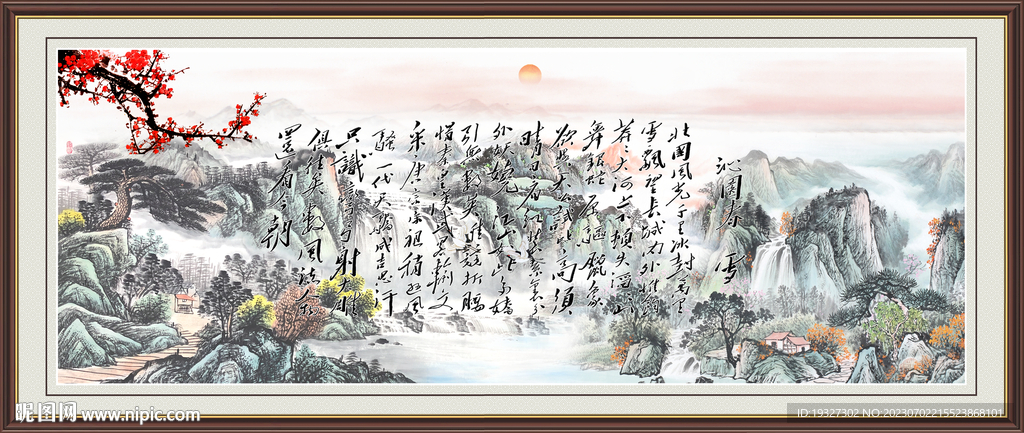 沁園春 雪
北國風光千里冰封萬里
雪飄望長城内外惟餘
莽莽大河上下頓失滔滔山
舞銀蛇原驅臘象
欲與天公試比高須
晴日看紅裝素裹分
外妖嬈江山如此多嬌
引無數英雄競折腰
惜秦皇漢武略輸文
采唐宗宋祖稍遜風
騷一代天驕成吉思汗
只識彎弓射大雕
俱往矣數風流人物
還看今朝
昵图网 www.nipic.com
ID:19327302 NO:20230702215523868101